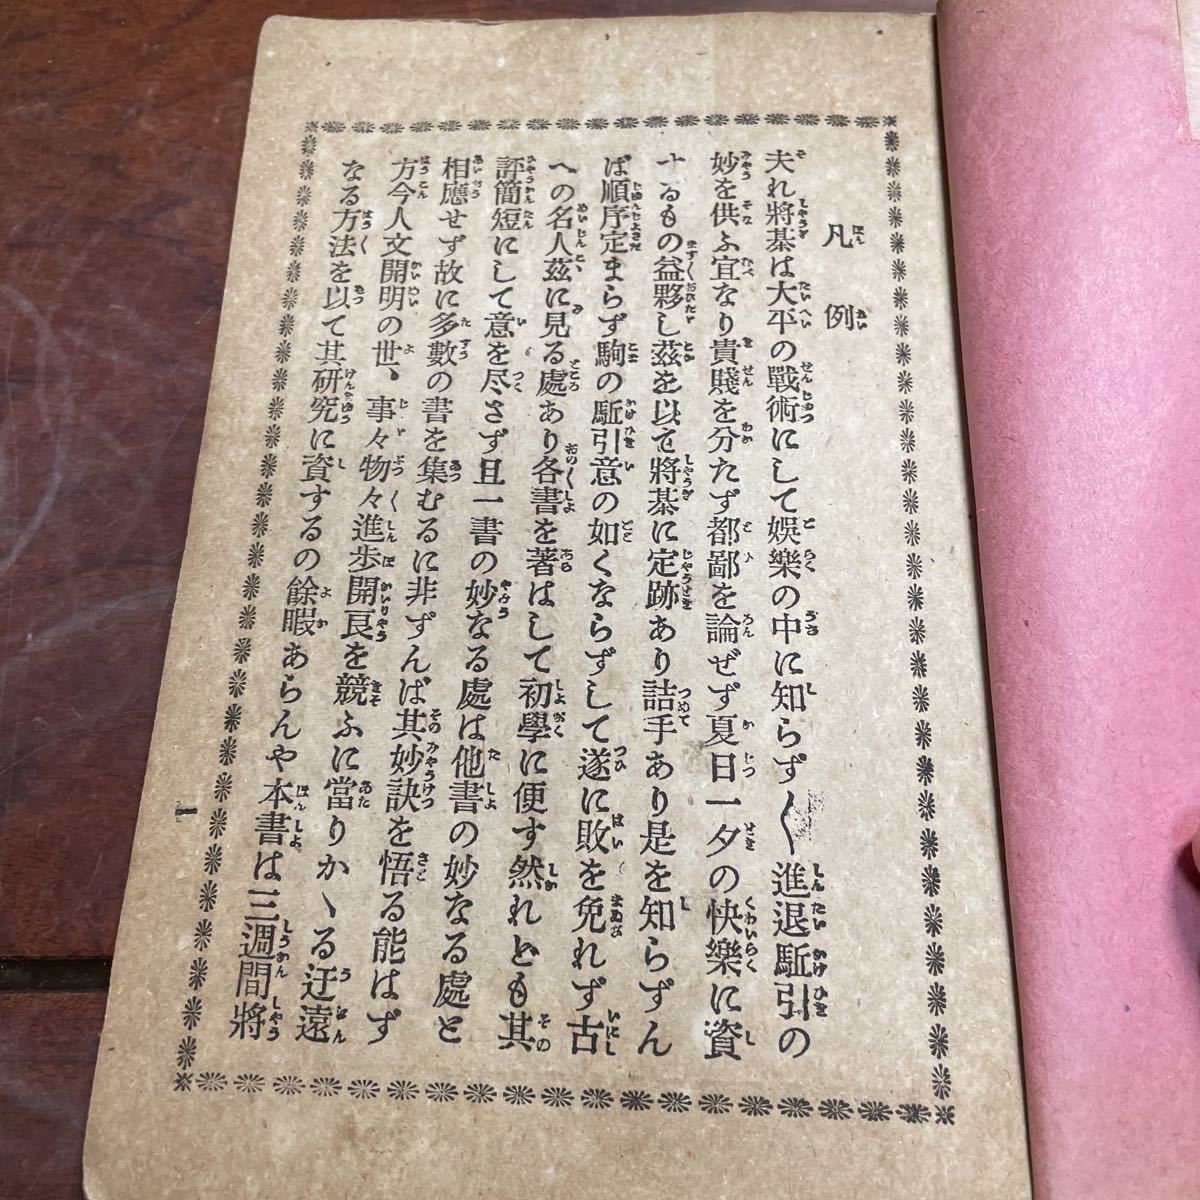 凡例
夫れ將棊は大平の戰術にして娯樂の中に知らず〱進退駈引の
妙を供ふ宜なり貴賤を分たず都鄙を論ぜず夏日一夕の快樂に資
するもの益夥し茲を以て將棊に定跡あり詰手あり是を知らずん
ば順序定まらず駒の駈引意の如くならずして遂に敗を免れず古
への名人茲に見る處あり各書を著はして初學に便す然れども其
評簡短にして意を尽さず且一書の妙なる處は他書の妙なる處と
相應せず故に多數の書を集むるに非ずんば其妙訣を悟る能はず
方今人文開明の世、事々物々進歩開良を競ふに當りかヽる迂遠
なる方法を以て其研究に資するの餘暇あらんや本書は三週間將
一